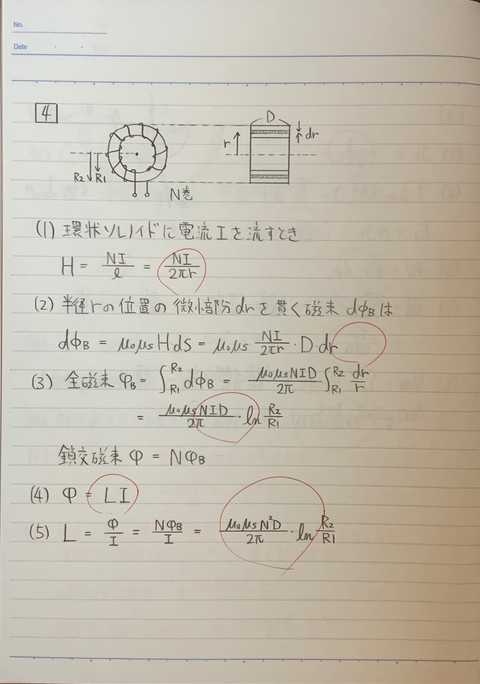 No.
Date
4
D
dr
r
R2 R1
N巻
(1) 環状ソレノイドに電流Iを流すとき
H = NI/l = NI/2πr
(2) 半径rの位置の微小部分drを貫く磁束 dΦB は
dΦB = μ0μs H dS = μ0μs NI/2πr · D dr
(3) 全磁束 ΦB = ∫R1R2 dΦB = μ0μsNID/2π ∫R1R2 dr/r
= μ0μsNID/2π · ln R2/R1
鎖交磁束 Φ = NΦB
(4) Φ = LI
(5) L = Φ/I = NΦB/I = μ0μsN²D/2π · ln R2/R1